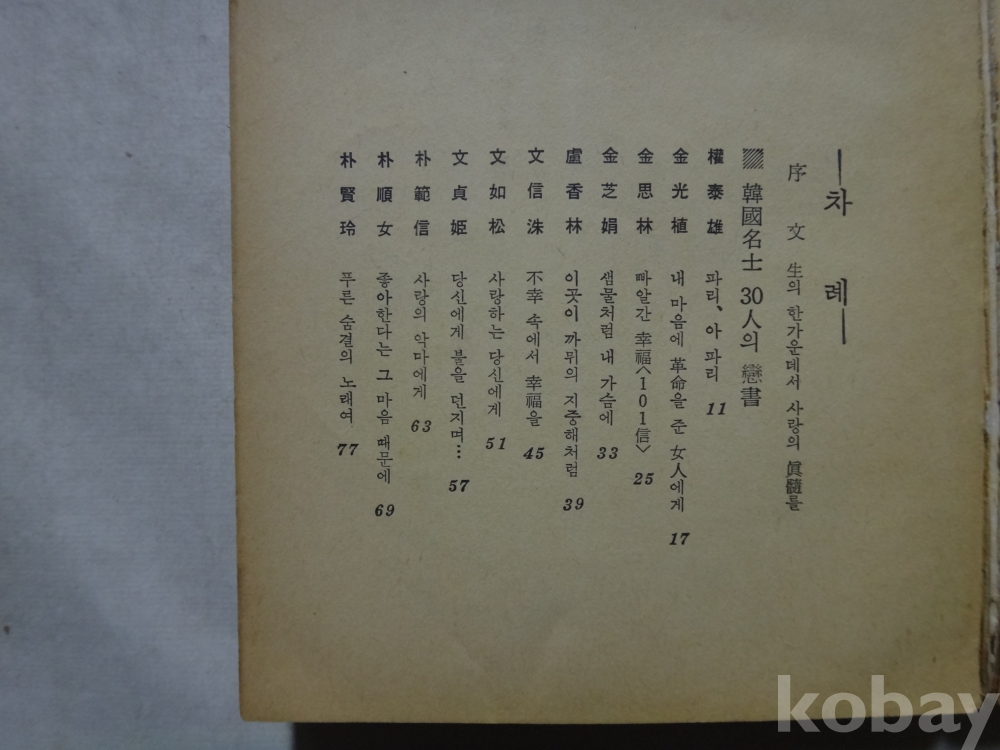 차례
序文 生의 한가운데서 사랑의 眞髓를
韓國名士 30人의 戀書
權泰雄 파리、아 파리 11
金光植 내 마음에 革命을 준 女人에게 17
金思林 빠알간 幸福〈101信〉 25
金芝娟 샘물처럼 내 가슴에 33
盧香林 이곳이 까뮈의 지중해처럼 39
文信洙 不幸 속에서 幸福을 45
文如松 사랑하는 당신에게 51
文貞姬 당신에게 불을 던지며… 57
朴範信 사랑의 악마에게 63
朴順女 좋아한다는 그 마음 때문에 69
朴賢玲 푸른 숨결의 노래여 77
kobay